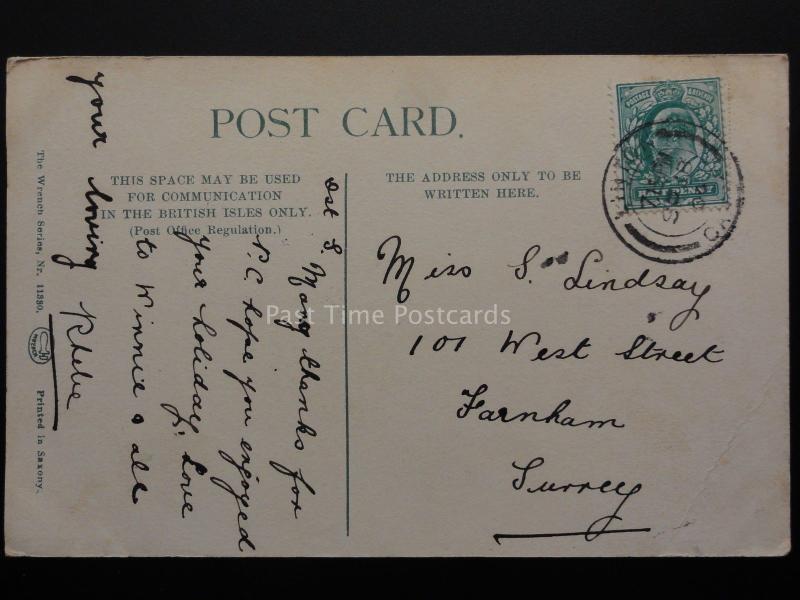 POST CARD.
THIS SPACE MAY BE USED
FOR COMMUNICATION
IN THE BRITISH ISLES ONLY.
(Post Office Regulation.)
THE ADDRESS ONLY TO BE
WRITTEN HERE.
POSTAGE
HALFPENNY
Miss S. Lindsay
101 West Street
Farnham
Surrey
S. Many thanks for
P.C. hope you enjoyed
your holiday, Love
to Winnie & all
your loving Phebe
The Wrench Series, Nr. 11380.
Printed in Saxony.
Past Time Postcards